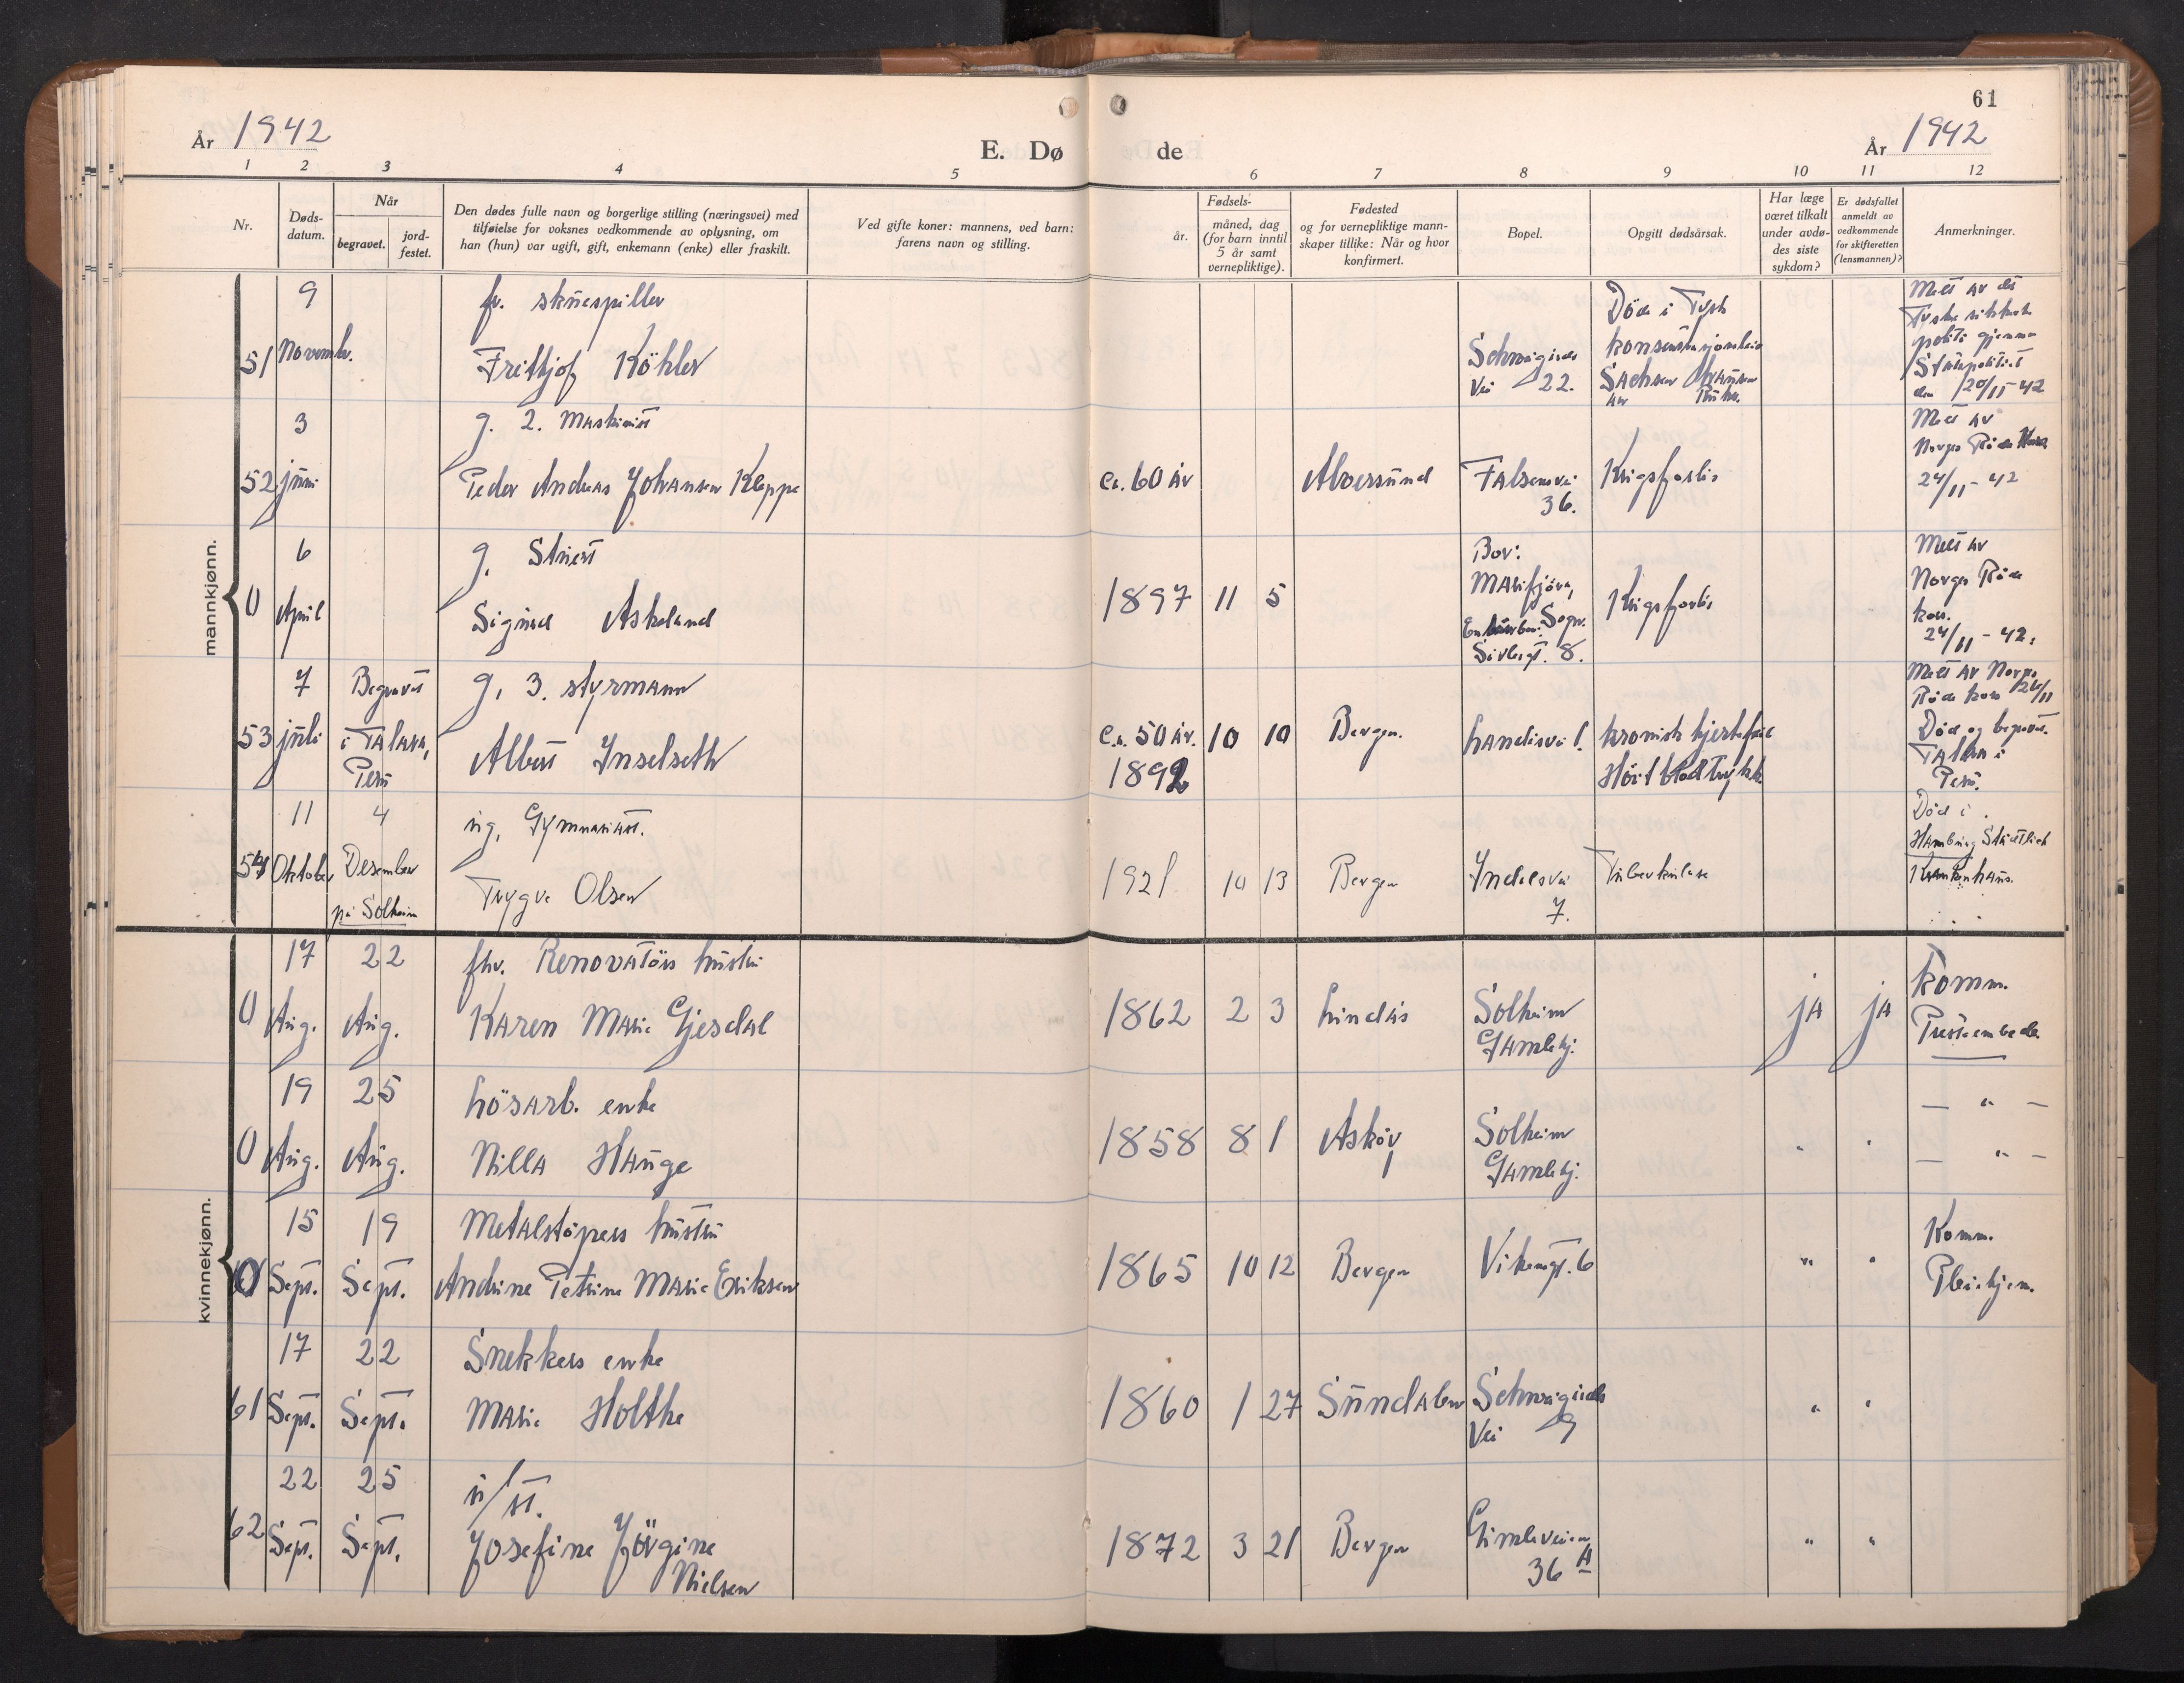 61
År 1942
E. Dø
de
År 1942
1 2 3 4 5 6 7 8 9 10 11 12
Nr.
Døds-
datum.
Når
begravet.
jord-
festet.
Den dødes fulle navn og borgerlige stilling (næringsvei) med
tilføielse for voksnes vedkommende av oplysning, om
han (hun) var ugift, gift, enkemann (enke) eller fraskilt.
Ved gifte koner: mannens, ved barn:
farens navn og stilling.
Fødsels-
år.
måned, dag
(for barn inntil
5 år samt
vernepliktige).
Fødested
og for vernepliktige mann-
skaper tillike: Når og hvor
konfirmert.
Bopel.
Opgitt dødsårsak.
Har læge
været tilkalt
under avdø-
des siste
sykdom?
Er dødsfallet
anmeldt av
vedkommende
for skifteretten
(lensmannen)?
Anmerkninger.
mannkjønn.
51
9
Novemb.
fr. skuespiller
Frithjof Köhler
Vei 22.
Død i Tysk
Melt av det
politi gjennem
Statspolitiet
den 20/11-42
52
3
juni
g. 2. Maskinist
Peder Andreas Johansen Kleppe
Ca. 60 år
Alversund
Falsensvei
36.
Krigsforlis
Melt av
Norges Røde Kors
24/11-42
0
6
April
g. Stuert
Sigurd Askeland
1897 11 5
Bor:
Marifjöra,
Sogn.
8.
Krigsforlis
Melt av
Norges Røde
kors.
24/11-42.
53
7
juli
Begravet
i Talara,
Peru
g. 3. styrmann
Albert Ynselseth
Ca. 50 år.
1892
10 10
Bergen.
kronisk hjertefeil
Höit blodtrykk
Melt av Norges
Røde kors 26/11
Død og begravet.
Talara i
Peru.
54
11
Oktober
4
Desember
på Solheim
ug. Gymnasiast.
Trygve Olsen
1921 10 13
Bergen
Yndalsvei
7.
Tuberkulose
Død i
Hamburg Städtlich
Krankenhaus.
kvinnekjønn.
0
17
Aug.
22
Aug.
fhv. Renovatörs hustru
Karen Marie Gjesdal
1862 2 3
Lindås
Solheim
Gamlehj.
ja
ja
Komm.
Presteembede
0
19
Aug.
25
Aug.
Lösarb. enke
Nilla Hauge
1858 8 1
Asköy
Solheim
Gamlehj.
"
"
— " —
— " —
0
15
Sept.
19
Sept.
Metalstöpers hustru
Andrine Petrine Marie Eriksen
1865 10 12
Bergen
Vikengt. 6
"
"
Komm.
Pleiehjem.
61
17
Sept.
22
Sept.
Snekkers enke
Marie Holthe
1860 1 27
Sundalen
Vei 9
"
"
62
22
Sept.
25
Sept.
u/st.
Josefine Jörgine
Nielsen
1872 3 21
Bergen
Gimleveien
36 A
"
"